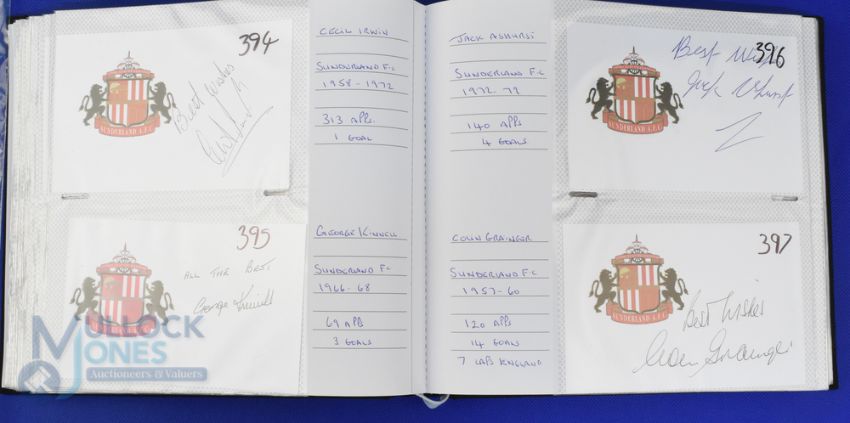 394
SUNDERLAND A.F.C
Best wishes
CECIL IRWIN
SUNDERLAND F.C
1958 - 1972
313 APPS.
1 GOAL
395
ALL THE BEST.
George Kinnell
GEORGE KINNELL
SUNDERLAND F.C
1966 - 68
69 APPS
3 GOALS
MULLOCK
JONES
Auctioneers & Valuers
JACK ASHURST
SUNDERLAND F.C
1972 - 79
140 APPS
4 GOALS
396
SUNDERLAND A.F.C
Best
Jack Ashurst
COLIN GRAINGER
SUNDERLAND F.C
1957 - 60
120 APPS
14 GOALS
7 CAPS ENGLAND
397
SUNDERLAND A.F.C
Best Wishes
Colin Grainger